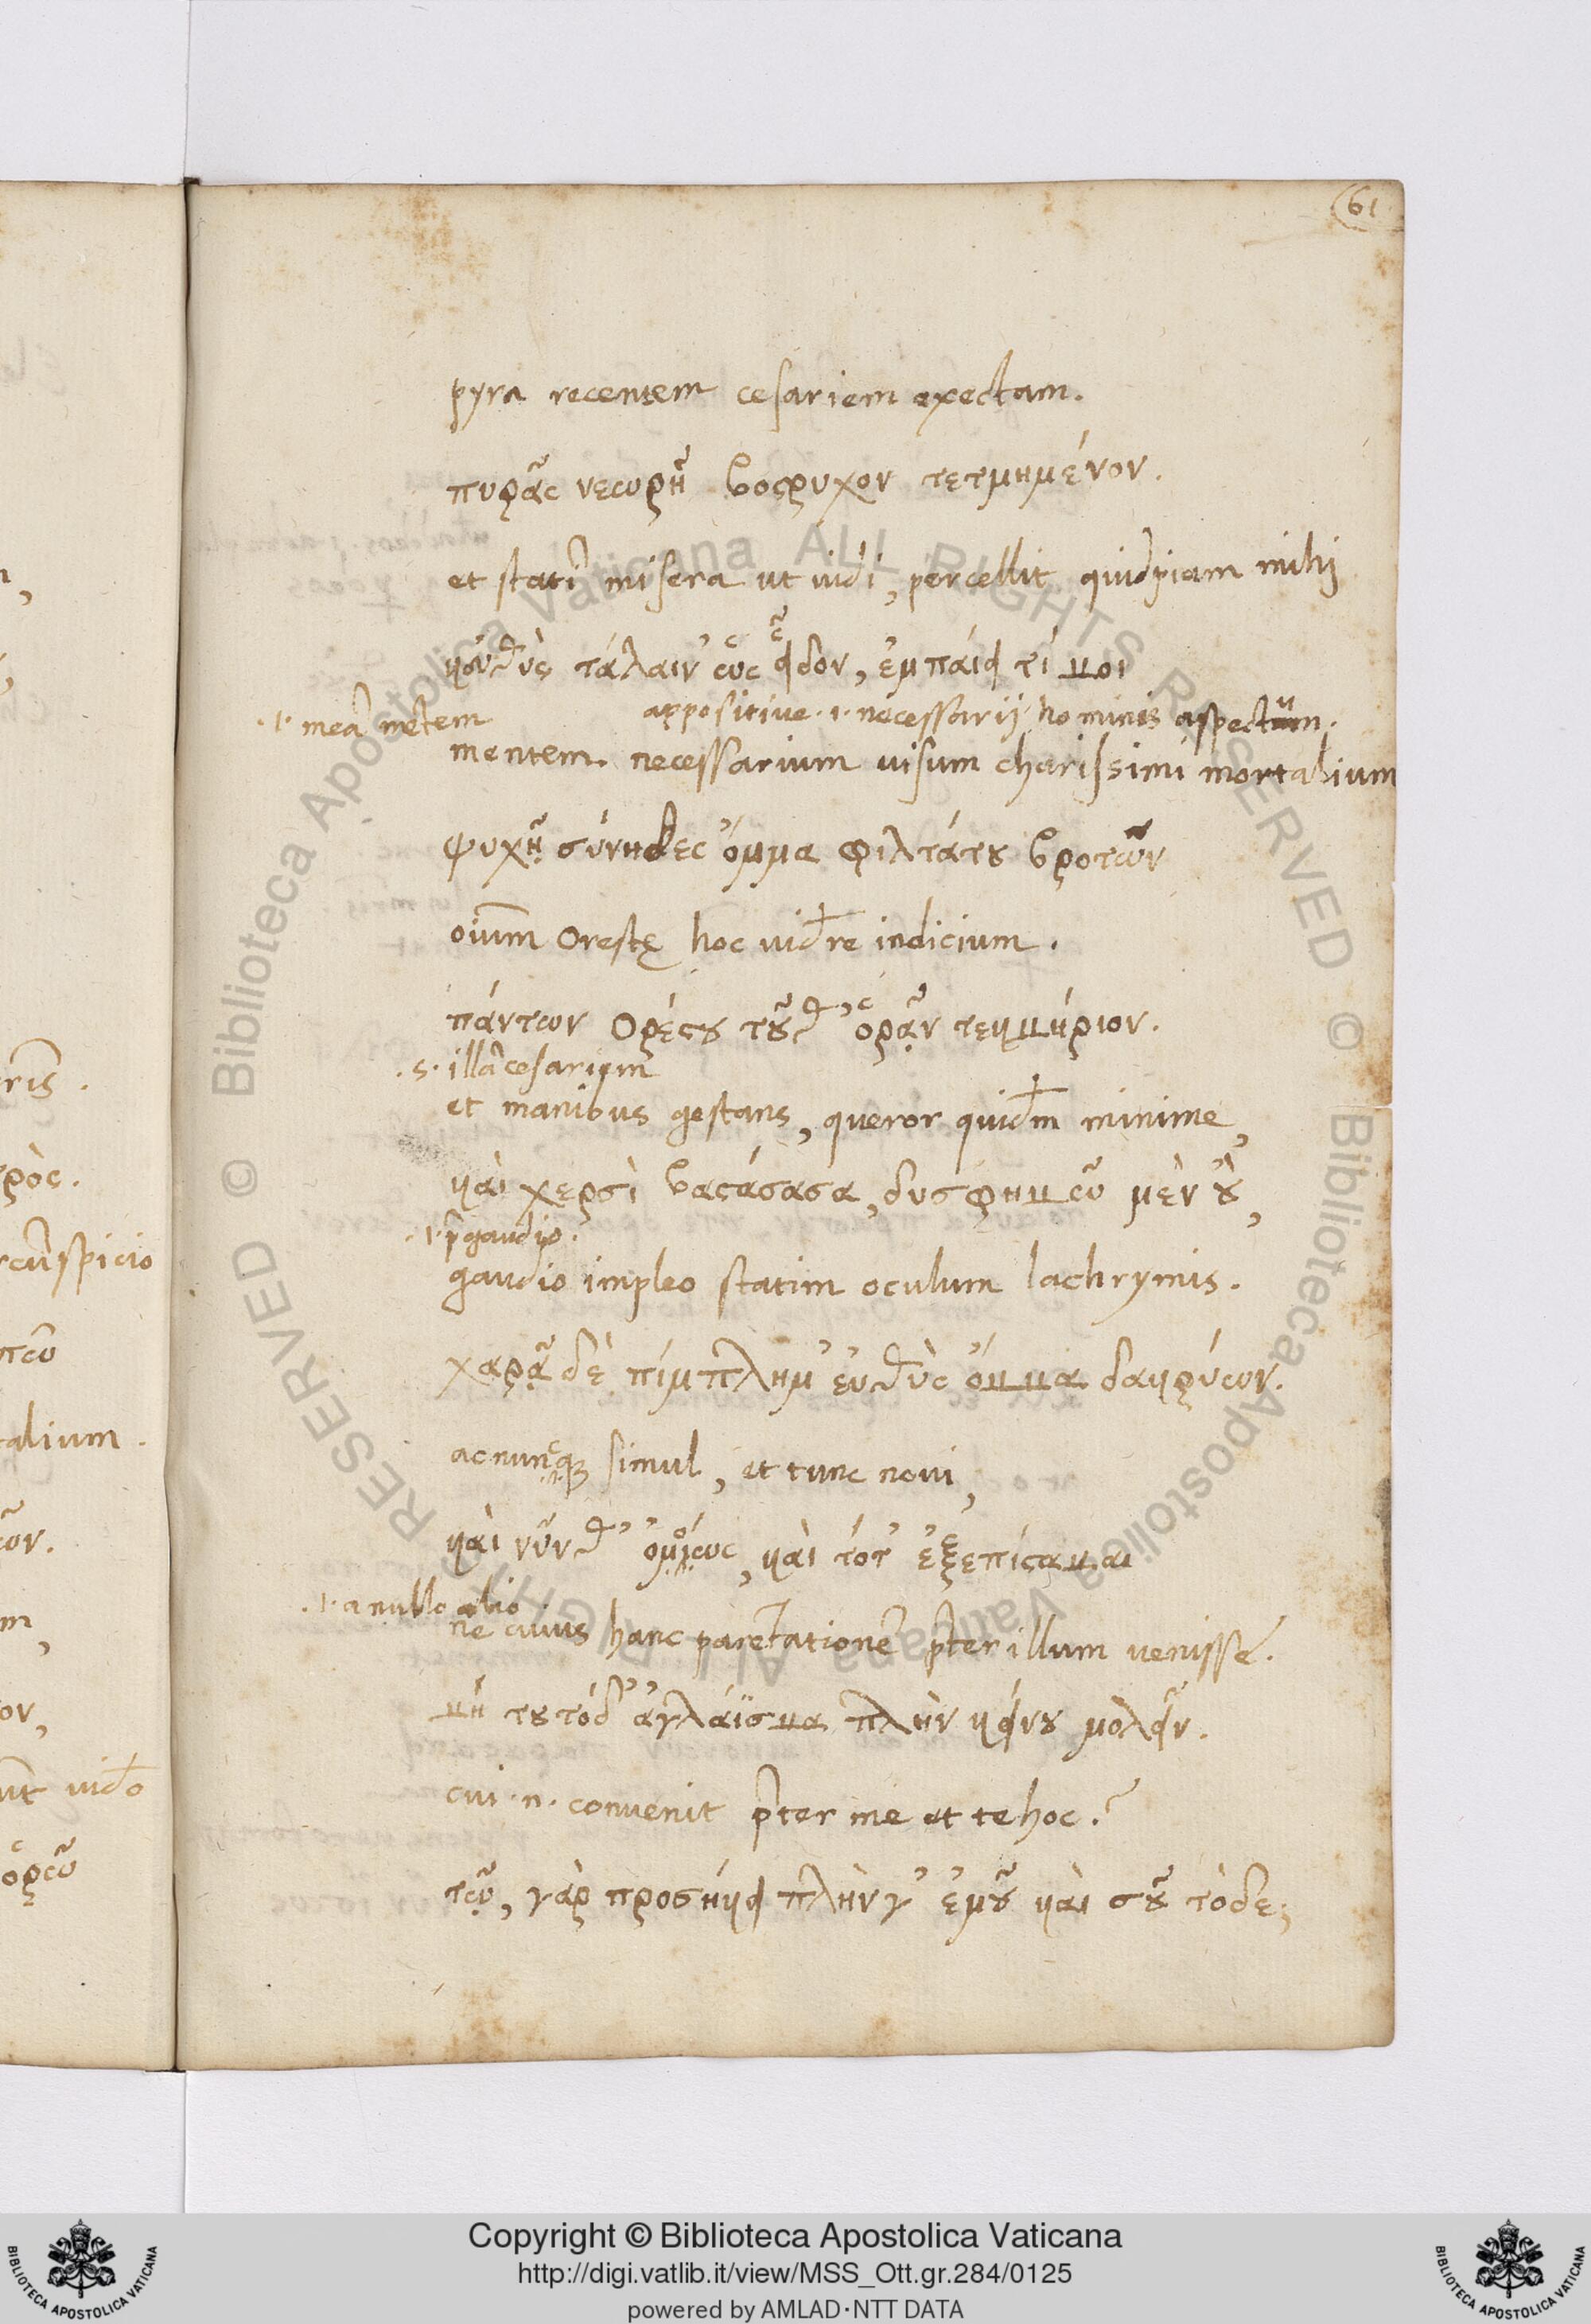 61
pyra recentem cesariem exectam.
πυρᾶς νεωρῆ βόςρυχον τετμημένον.
et stati᷃ misera ut uidi, percellit quidpiam mihi
κουθὺς τάλαιν' ὡς εἶδον, ἐμπάιει τί μοι
.i. mea᷃ me᷃tem appositiue .i. necessarij hominis aspectum.
mentem. necessarium uisum charissimi mortalium
ψυχῆ σύνηθες ὄμμα φιλτάτου βροτῶν
oium᷃ Orestę hoc uidre indicium.
πάντων Ορέςου τοῦθ' ὁρᾶν τεκμήριον.
.s. illa᷃ cesariem
et manibus gestans, queror quidm minime,
καὶ χερσὶ βαςάσασα, δυσφημῶ μὲν οὔ,
.i. p᷃ gaudio.
gaudio impleo statim oculum lachrymis.
χαρᾷ δὲ πίμπλημ' ἐυθὺς ὄμμα δακρύων.
ac nuncque simul, et tunc noui,
καὶ νῦν θ' ὁμοίως, καὶ τότ' ἐξεπίςαμαι
.i. a nullo alio
ne cuius hanc pare᷃tatione᷃ p᷃ter illum uenisse.
μή του τόδ' ἀγλάϊσμα πλὴν κείνου μολεῖν.
cui .n. conuenit p᷃ter me et te hoc.?
τῷ, γὰρ προσήκει πλὴν γ' ἐμοῦ καὶ σοῦ τόδε;
ris᷃.
ρὸς.
rcu᷃spicio
talium.
uidro
ὁρῶ
Copyright © Biblioteca Apostolica Vaticana
http://digi.vatlib.it/view/MSS_Ott.gr.284/0125
powered by AMLAD·NTT DATA
BIBLIOTECA APOSTOLICA VATICANA
BIBLIOTECA APOSTOLICA VATICANA
© Biblioteca Apostolica Vaticana ALL RIGHTS RESERVED
© Biblioteca Apostolica Vaticana ALL RIGHTS RESERVED